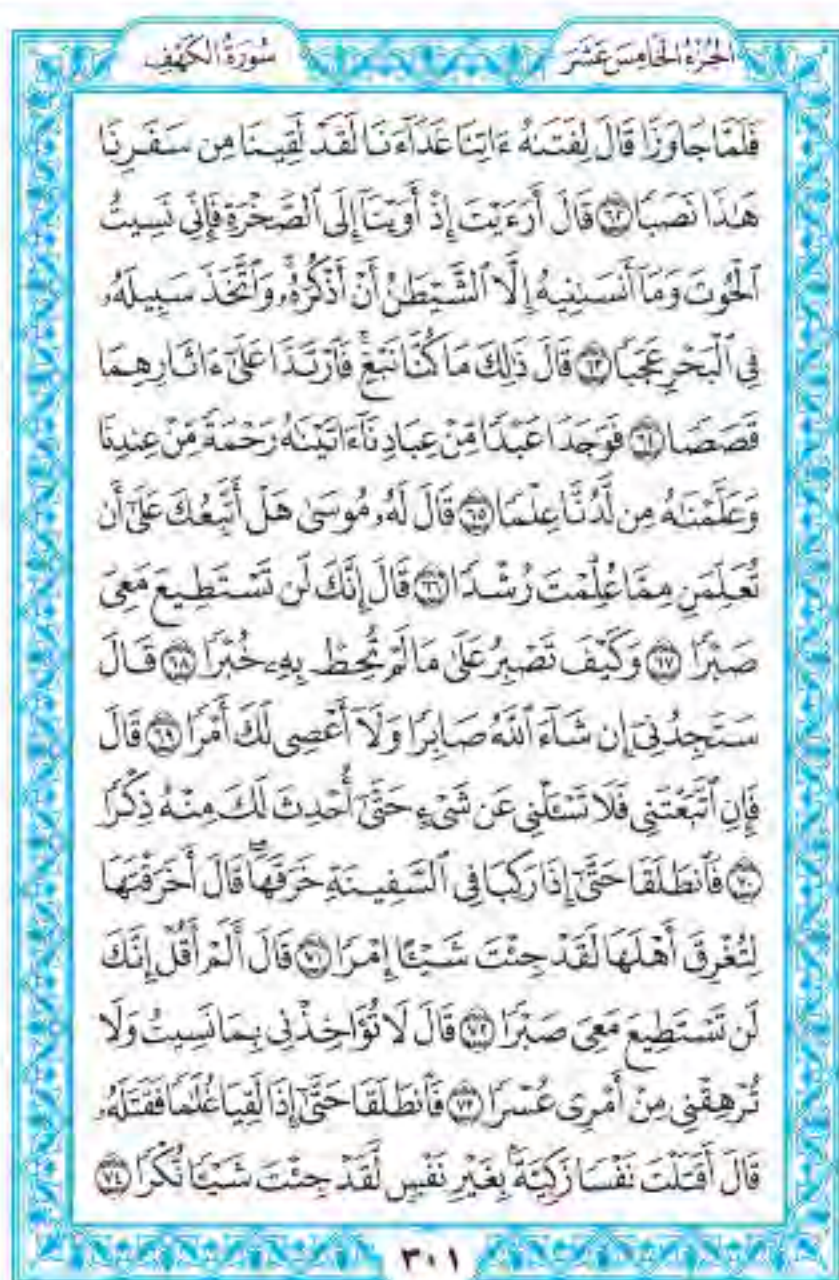 الجُزْءُ الخَامِسَ عَشَرَ
سُورَةُ الكَهْفِ
فَلَمَّا جَاوَزَا قَالَ لِفَتَىٰهُ ءَاتِنَا غَدَآءَنَا لَقَدْ لَقِينَا مِن سَفَرِنَا
هَٰذَا نَصَبٗا ٦٢ قَالَ أَرَءَيۡتَ إِذۡ أَوَيۡنَآ إِلَى ٱلصَّخۡرَةِ فَإِنِّي نَسِيتُ
ٱلۡحُوتَ وَمَآ أَنسَىٰنِيهُ إِلَّا ٱلشَّيۡطَٰنُ أَنۡ أَذۡكُرَهُۥۚ وَٱتَّخَذَ سَبِيلَهُۥ
فِي ٱلۡبَحۡرِ عَجَبٗا ٦٣ قَالَ ذَٰلِكَ مَا كُنَّا نَبۡغِۚ فَٱرۡتَدَّا عَلَىٰٓ ءَاثَارِهِمَا
قَصَصٗا ٦٤ فَوَجَدَا عَبۡدٗا مِّنۡ عِبَادِنَآ ءَاتَيۡنَٰهُ رَحۡمَةٗ مِّنۡ عِندِنَا
وَعَلَّمۡنَٰهُ مِن لَّدُنَّا عِلۡمٗا ٦٥ قَالَ لَهُۥ مُوسَىٰ هَلۡ أَتَّبِعُكَ عَلَىٰٓ أَن
تُعَلِّمَنِ مِمَّا عُلِّمۡتَ رُشۡدٗا ٦٦ قَالَ إِنَّكَ لَن تَسۡتَطِيعَ مَعِيَ
صَبۡرٗا ٦٧ وَكَيۡفَ تَصۡبِرُ عَلَىٰ مَا لَمۡ تُحِطۡ بِهِۦ خُبۡرٗا ٦٨ قَالَ
سَتَجِدُنِيٓ إِن شَآءَ ٱللَّهُ صَابِرٗا وَلَآ أَعۡصِي لَكَ أَمۡرٗا ٦٩ قَالَ
فَإِنِ ٱتَّبَعۡتَنِي فَلَا تَسۡـَٔلۡنِي عَن شَيۡءٍ حَتَّىٰٓ أُحۡدِثَ لَكَ مِنۡهُ ذِكۡرٗا
٧٠ فَٱنطَلَقَا حَتَّىٰٓ إِذَا رَكِبَا فِي ٱلسَّفِينَةِ خَرَقَهَاۖ قَالَ أَخَرَقۡتَهَا
لِتُغۡرِقَ أَهۡلَهَا لَقَدۡ جِئۡتَ شَيۡـًٔا إِمۡرٗا ٧١ قَالَ أَلَمۡ أَقُلۡ إِنَّكَ
لَن تَسۡتَطِيعَ مَعِيَ صَبۡرٗا ٧٢ قَالَ لَا تُؤَاخِذۡنِي بِمَا نَسِيتُ وَلَا
تُرۡهِقۡنِي مِنۡ أَمۡرِي عُسۡرٗا ٧٣ فَٱنطَلَقَا حَتَّىٰٓ إِذَا لَقِيَا غُلَٰمٗا فَقَتَلَهُۥ
قَالَ أَقَتَلۡتَ نَفۡسٗا زَكِيَّةَۢ بِغَيۡرِ نَفۡسٖ لَّقَدۡ جِئۡتَ شَيۡـٔٗا نُّكۡرٗا ٧٤
٣٠١